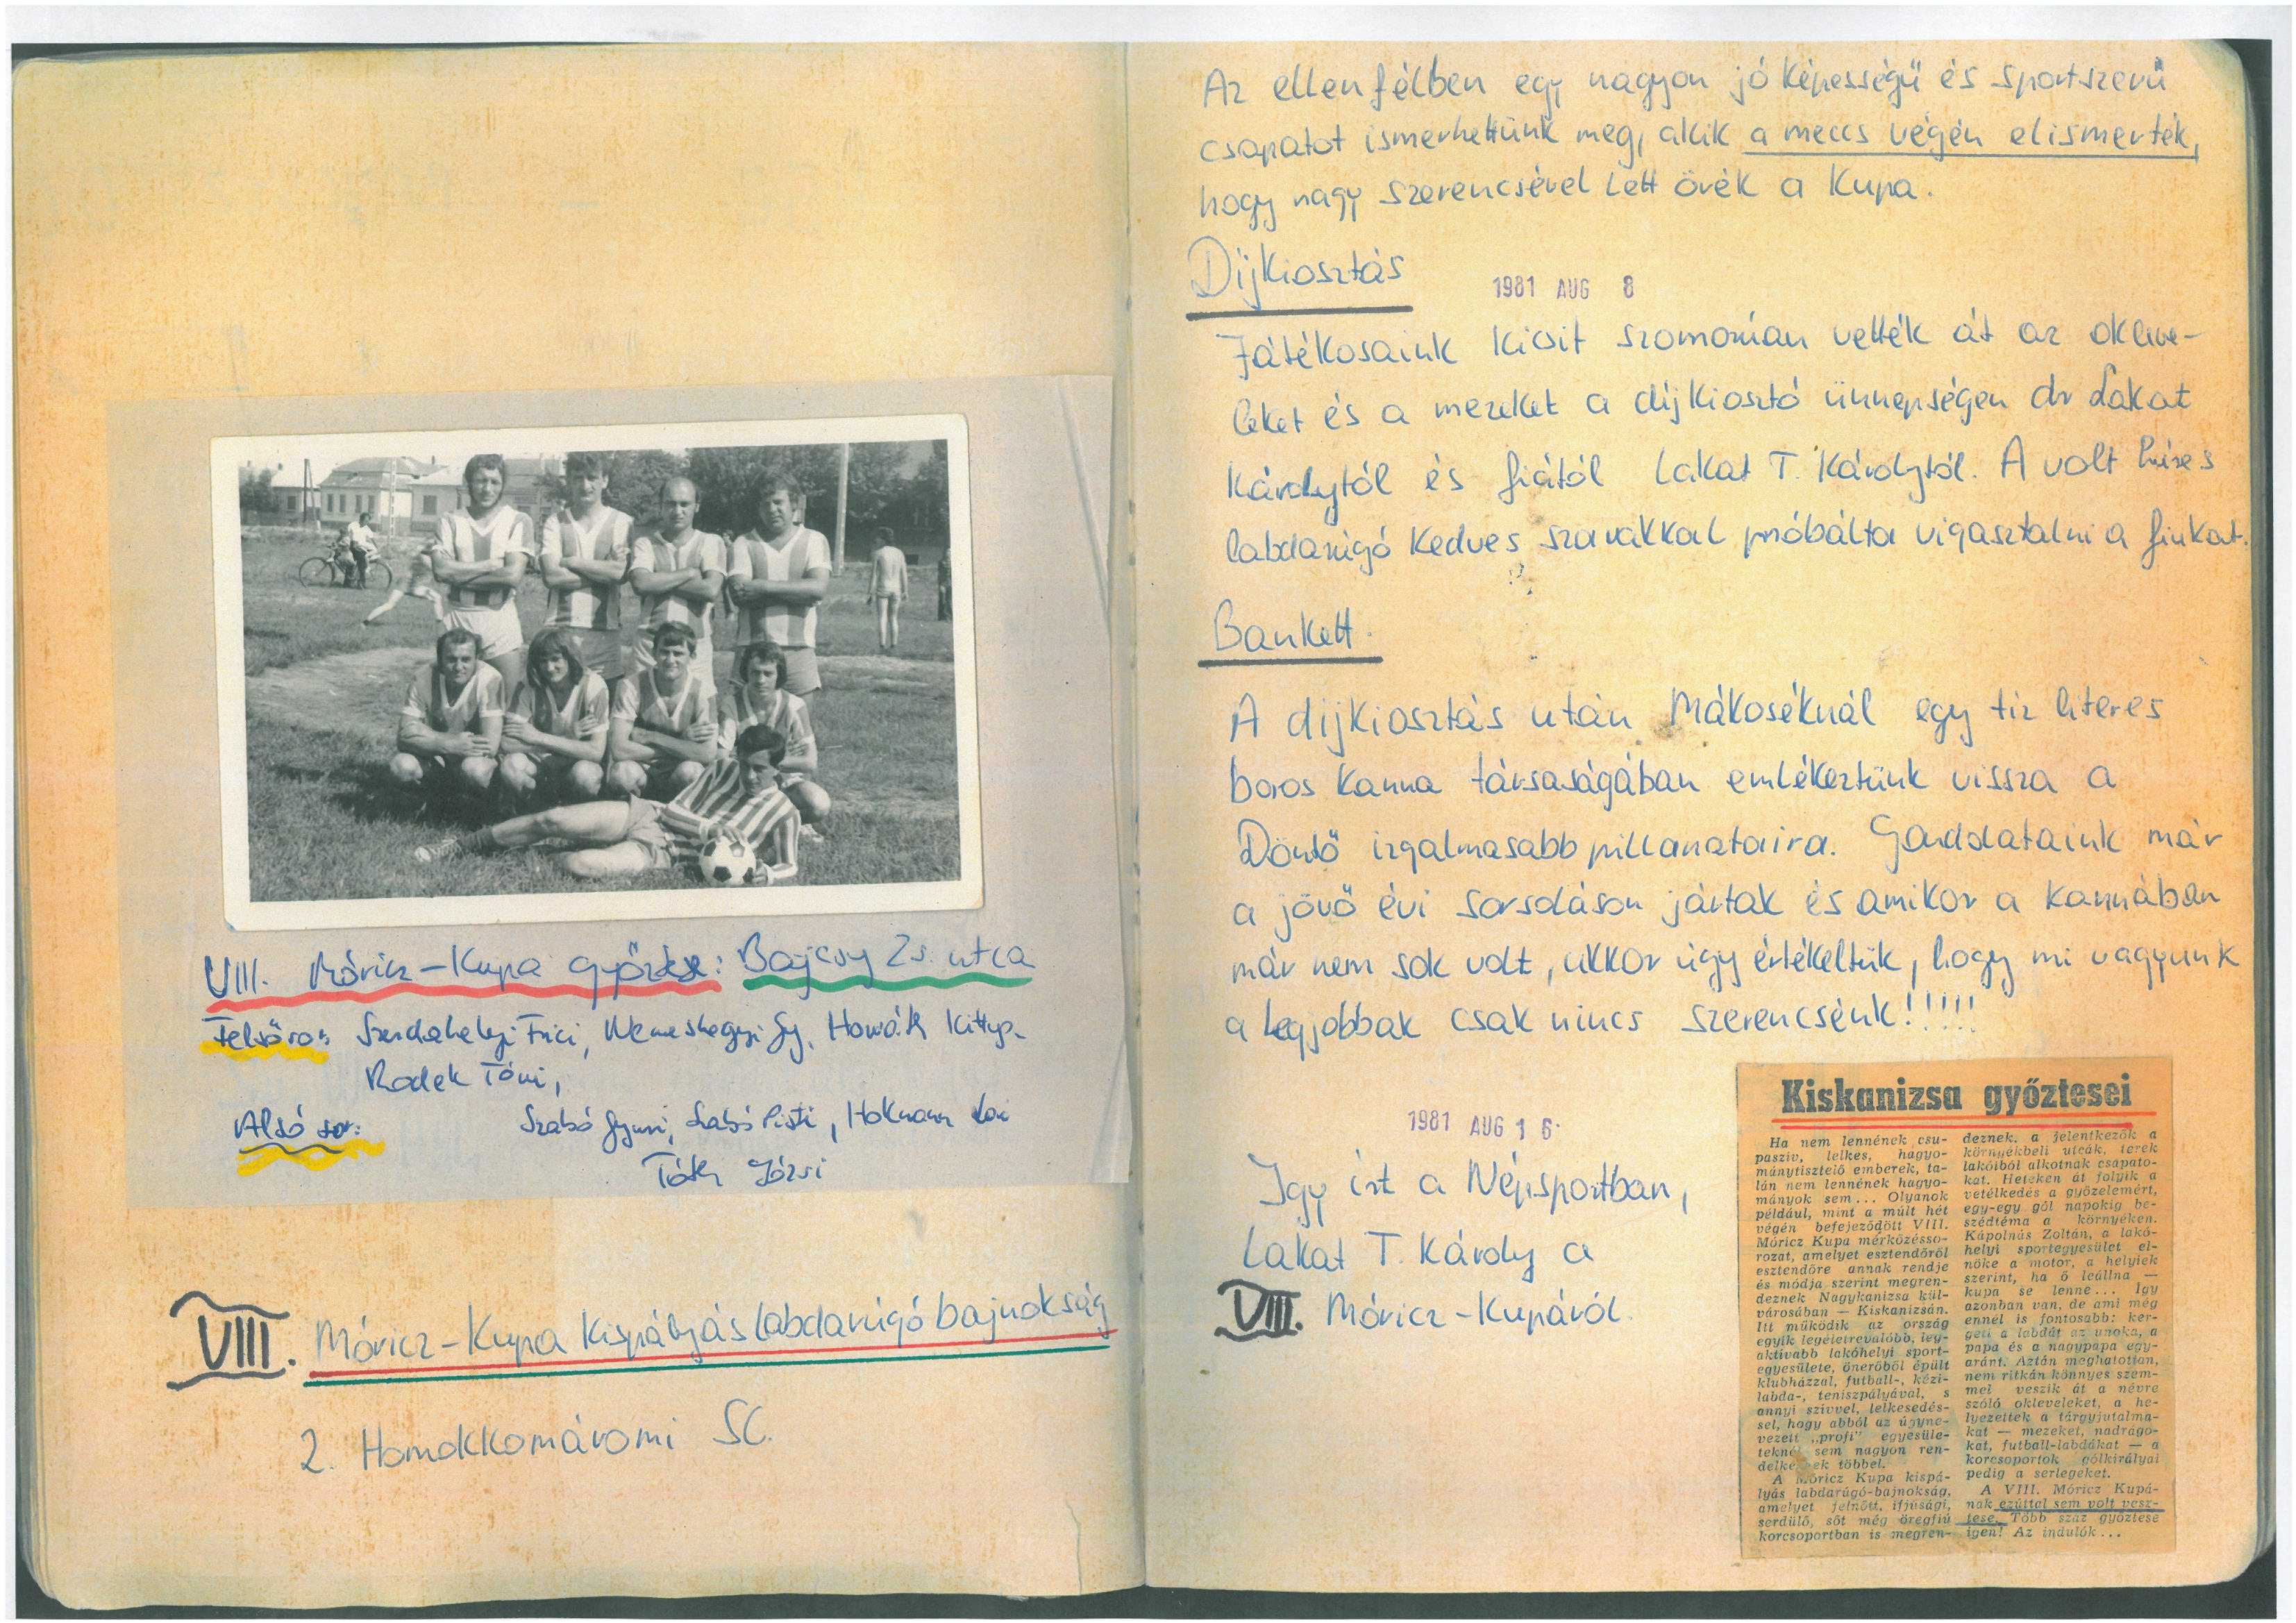 VIII. Móricz-Kupa győztese: Bajcsy Zs. utca
Felsősor: Szerdahelyi Frici, Nemeshegyi Gy, Horváth
Radek Tóni,
Alsó sor: Szabó Gyuri, Szabó Pisti, Hokmann
Tóth Józsi
VIII. Móricz-Kupa Kispályás labdarúgó bajnokság
2. Homokkomáromi SC.
Az ellenfélben egy nagyon jó képességű és sportszerű
csapatot ismerhettünk meg, akik a meccs végén elismerték,
hogy nagy szerencsével lett övék a Kupa.
Díjkiosztás
1981 AUG 8
Játékosaink kicsit szomorúan vették át az okleve-
leket és a mezeket a díjkiosztó ünnepségen dr Lakat
Károlytól és fiától Lakat T. Károlytól. A volt híres
labdarúgó kedves szavakkal próbálta vigasztalni a fiukat.
Bankett.
A díjkiosztás után Mákoséknál egy tiz literes
boros kanna társaságában emlékeztünk vissza a
Döntő izgalmasabb pillanataira. Gondolataink már
a jövő évi sorsoláson jártak és amikor a kannában
már nem sok volt, akkor úgy értékeltük, hogy mi vagyunk
a legjobbak csak nincs szerencsénk!!!!!
1981 AUG 16.
Igy írt a Népsportban,
Lakat T. Károly a
VIII. Móricz-Kupáról.
Kiskanizsa győztesei
Ha nem lennének csu-
paszív, lelkes, hagyo-
mánytisztelő emberek, ta-
lán nem lennének hagyo-
mányok sem... Olyanok
például, mint a múlt hét
végén befejeződött VIII.
Móricz Kupa mérkőzésso-
rozat, amelyet esztendőről
esztendőre annak rendje
és módja szerint megren-
deznek Nagykanizsa kül-
városában — Kiskanizsán.
Itt működik az ország
egyik legéletrevalóbb, leg-
aktívabb lakóhelyi sport-
egyesülete, önerőből épült
klubházzal, futball-, kézi-
labda-, teniszpályával, s
annyi szívvel, lelkesedés-
sel, hogy abból az úgyne-
vezett „profi” egyesüle-
teknél sem nagyon ren-
delkeznek többel.
A Móricz Kupa kispá-
lyás labdarúgó-bajnokság,
amelyet felnőtt, ifjúsági,
serdülő, sőt még öregfiú
korcsoportban is megren-
deznek, a jelentkezők a
környékbeli utcák, terek
lakóiból alkotnak csapato-
kat. Heteken át folyik a
vetélkedés a győzelemért,
egy-egy gól napokig be-
szédtéma a környéken.
Kápolnás Zoltán, a lakó-
helyi sportegyesület el-
nöke a motor, a helyiek
szerint, ha ő leállna —
kupa se lenne... Így
azonban van, de ami még
ennél is fontosabb: ker-
geti a labdát az unoka, a
papa és a nagypapa egy-
aránt. Aztán meghatottan,
nem ritkán könnyes szem-
mel veszik át a névre
szóló okleveleket, a he-
lyezettek a tárgyjutalma-
kat — mezeket, nadrágo-
kat, futball-labdákat — a
korcsoportok gólkirályai
pedig a serlegeket.
A VIII. Móricz Kupá-
nak ezúttal sem volt vesz-
tese. Több száz győztese
igen! Az indulók...